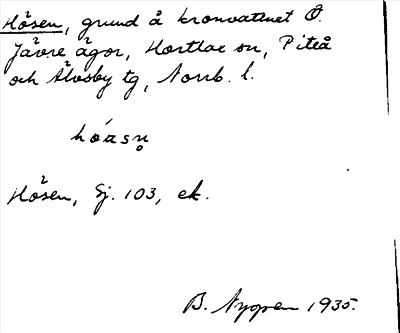 Håsen, grund å kronvattnet Ö.
Jävre ägor, Hortlax sn, Piteå
och Älvsby tg, Norrb. l.
hóasn̥
Håsen, Sj. 103, ek.
B. Nygren 1935.